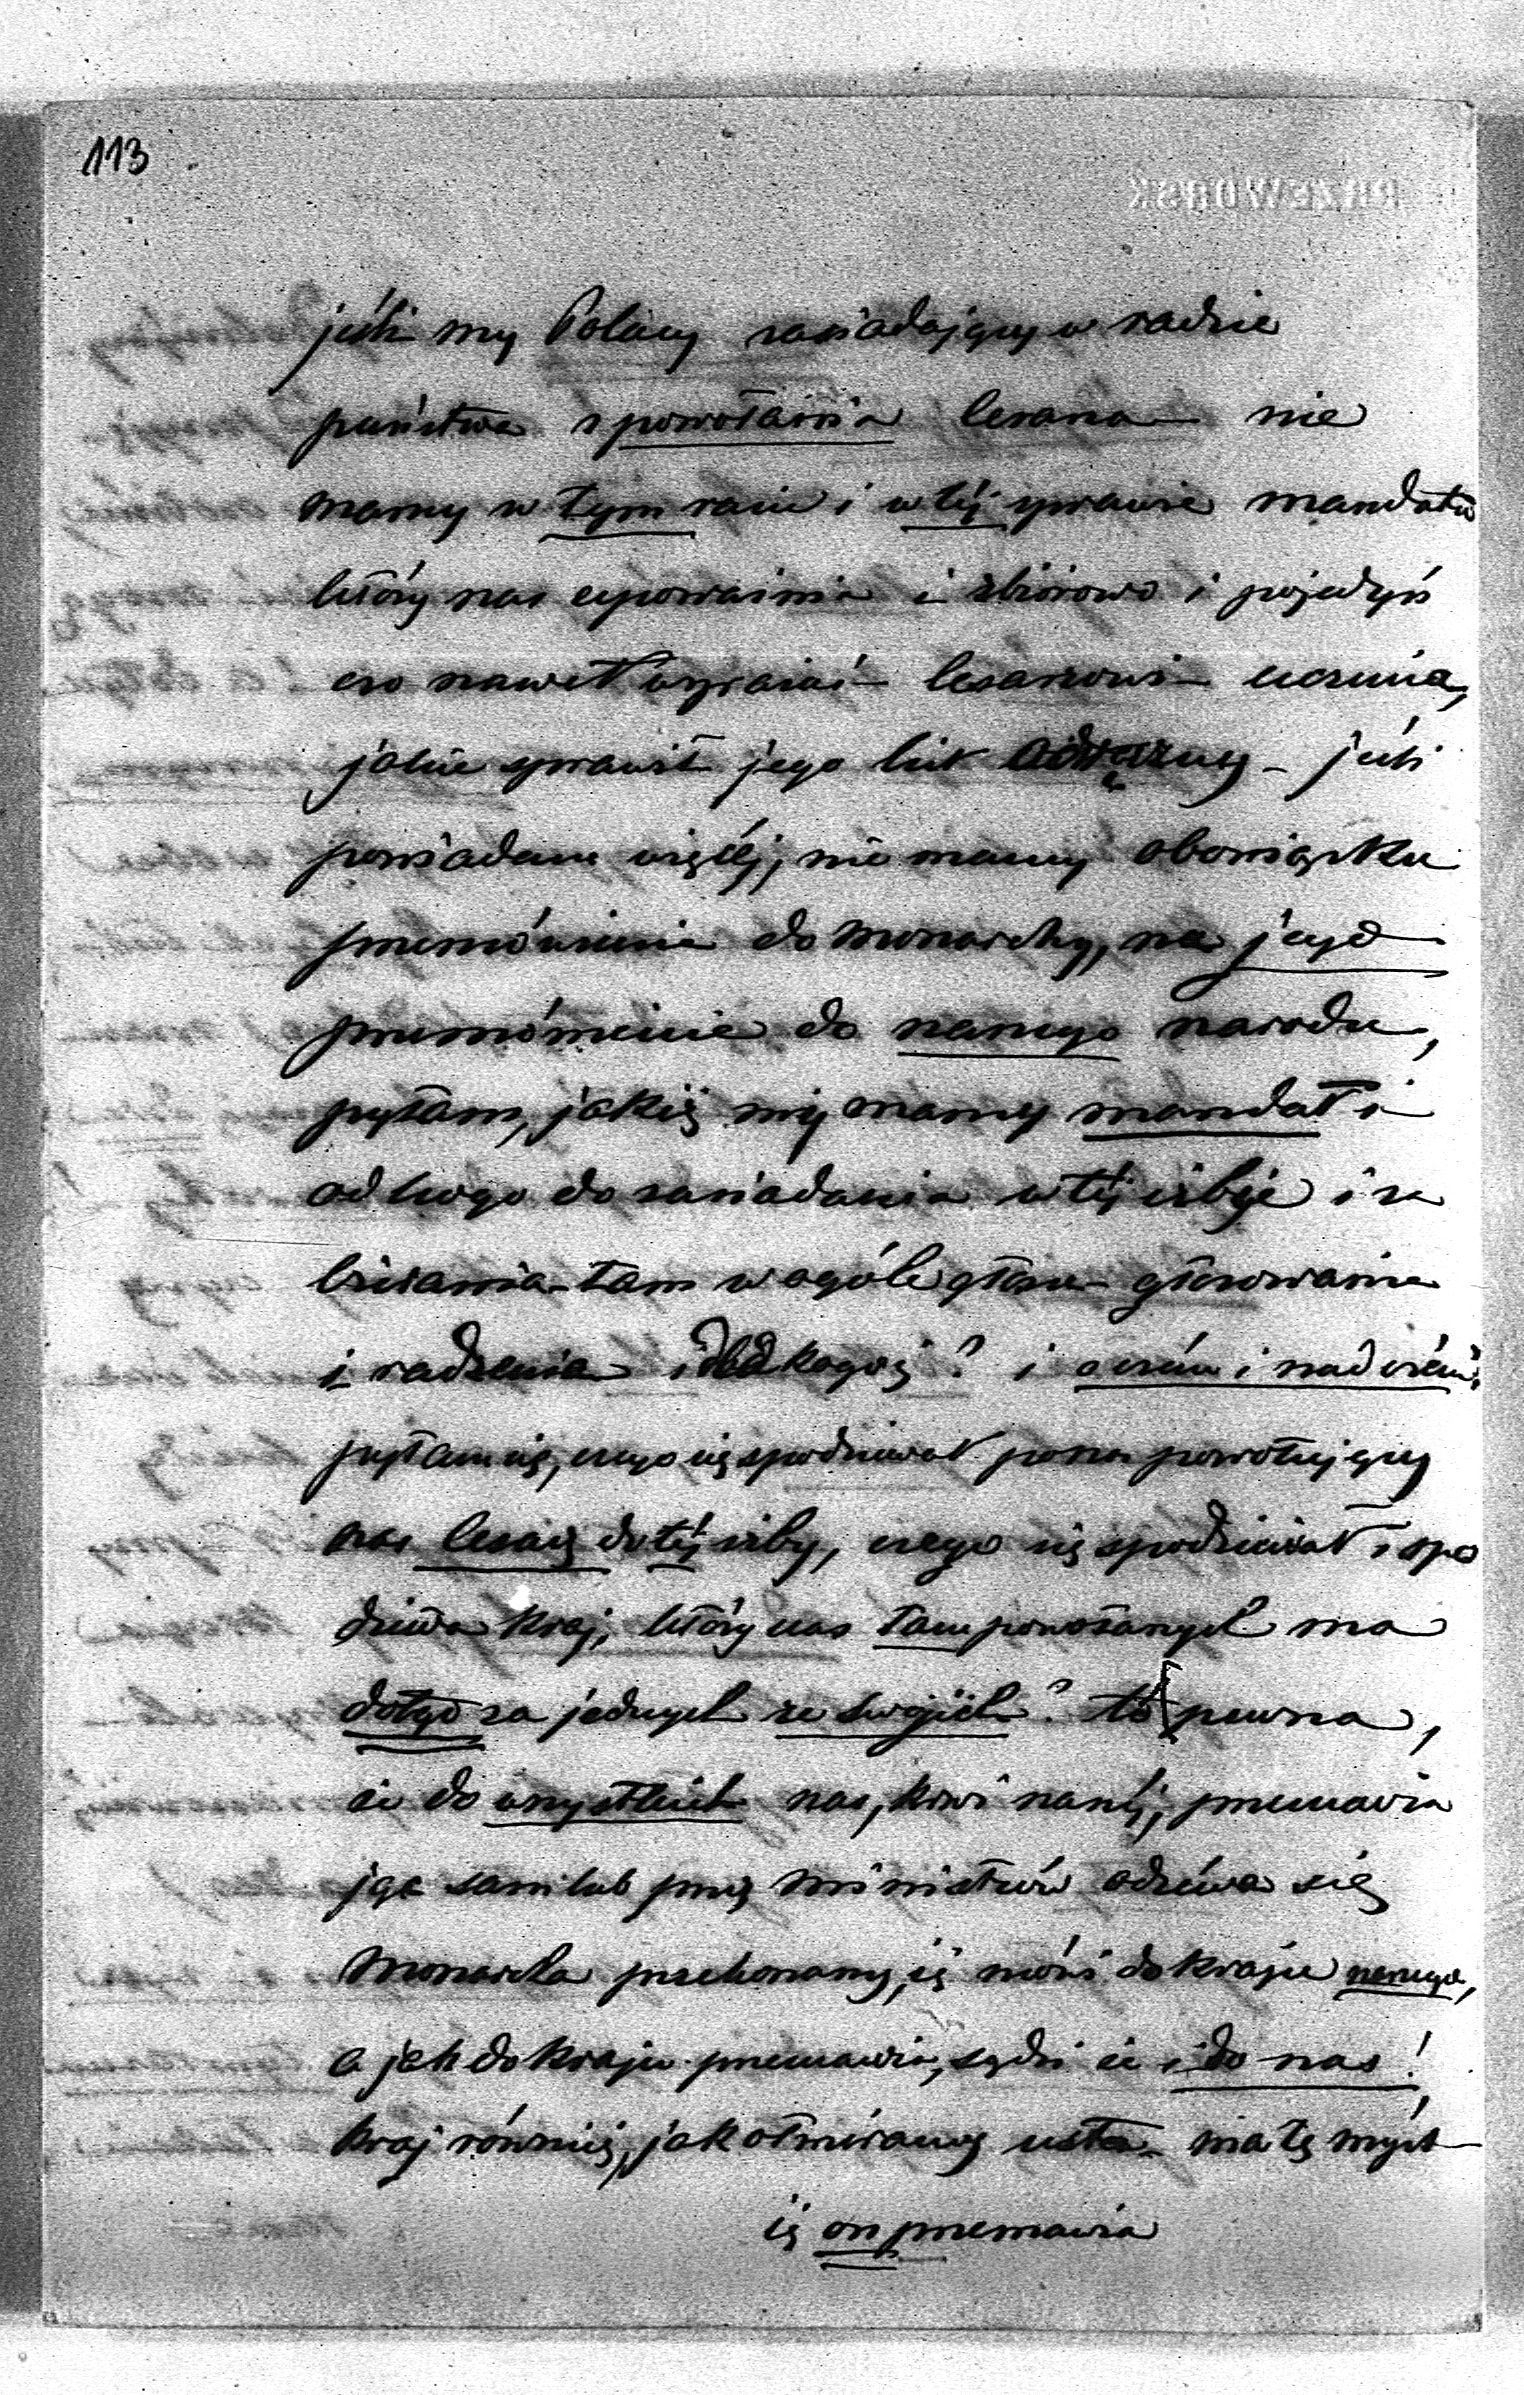 113
PRZEWORSK
jéśli my Polacy zasiadający w radzie
państwa z powołania Cesarza nie
mamy w tym razie i w téj sprawie mandatu
który nas upoważnia i zbiorowo i pojedyń
czo nawet wyrazić Cesarzowi uczucia,
jakie sprawił jego list - jéśli
powiadam więcéj, nie mamy obowiązku
przemówienia do monarchy, na jego
przemówienie do naszego narodu,
pytam, jakiż my mamy mandat i
od kogo do zasiadania w téj izbie i za
bierania tam w ogóle głosu głosowania
i radzenia i dla kogoż? i o czém i nad czém?
pytam się, czego się spodziewał po nas powołujący
nas Cesarz do téj izby, czego się spodziewał i spo
dziewa kraj, który nas tam powołanych ma
dotąd za jednych ze swojich? to pewna,
że do wszystkich nas, krwi naszéj, przemawia
jak sam lub przez ministrów odzéwa się
Monarcha przekonany, iż mówi do kraju naszego,
a jak do kraju przemawia, sądzi że i do nas!
kraj równiéż, jak otwiéramy usta ma tę myśl
iż on przemawia